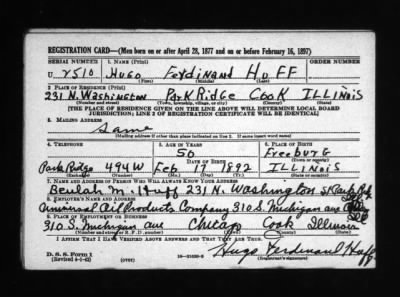 REGISTRATION CARD—(Men born on or after April 28, 1877 and on or before February 16, 1897)
SERIAL NUMBER 1. NAME (Print) ORDER NUMBER
U 2510 HUGO FERDINAND HUFF
(First) (Middle) (Last)
2. PLACE OF RESIDENCE (Print)
231 N. Washington Park Ridge Cook ILLINOIS
(Number and street) (Town, township, village, or city) (County) (State)
[THE PLACE OF RESIDENCE GIVEN ON THE LINE ABOVE WILL DETERMINE LOCAL BOARD
JURISDICTION; LINE 2 OF REGISTRATION CERTIFICATE WILL BE IDENTICAL]
3. MAILING ADDRESS
Same
[Mailing address if other than place indicated on line 2. If same insert word same]
4. TELEPHONE 5. AGE IN YEARS 6. PLACE OF BIRTH
50 Freeburg
DATE OF BIRTH (Town or county)
Park Ridge 494W Feb 17 1892 ILLINOIS
(Exchange) (Number) (Mo.) (Day) (Yr.) (State or country)
7. NAME AND ADDRESS OF PERSON WHO WILL ALWAYS KNOW YOUR ADDRESS
Beulah M. Huff 231 N. Washington St
8. EMPLOYER'S NAME AND ADDRESS
Universal Oil Products Company 310 S. Michigan ave
9. PLACE OF EMPLOYMENT OR BUSINESS
310 S. Michigan ave Chicago Cook Illinois
(Number and street or R. F. D. number) (Town) (County) (State)
I AFFIRM THAT I HAVE VERIFIED ABOVE ANSWERS AND THAT THEY ARE TRUE.
D. S. S. Form 1
(Revised 4-1-42) (over) Hugo Ferdinand Huff
(Registrant's signature)